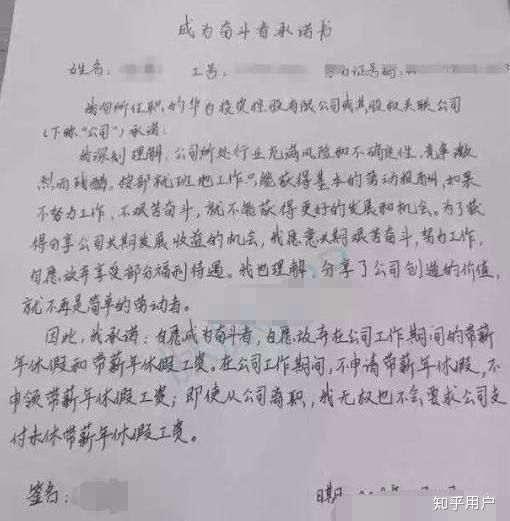 成为奋斗者承诺书
姓名： 工号： 证号码：
我向所任职的华为投资控股有限公司或其股权关联公司
（下称“公司”）承诺：
我深刻理解，公司所处行业充满风险和不确定性，竞争激
烈而残酷，按部就班地工作只能获得基本的劳动报酬，如果
不努力工作，不艰苦奋斗，就不能获得更好的发展和机会。为了获
得分享公司长期发展收益的机会，我愿意长期艰苦奋斗，努力工作，
自愿放弃享受部分福利待遇。我也理解，分享了公司创造的价值，
就不再是简单的劳动者。
因此，我承诺：自愿成为奋斗者，自愿放弃在公司工作期间的带薪
年休假和带薪年休假工资。在公司工作期间，不申请带薪年休假，不
申领带薪年休假工资；即使从公司离职，我无权也不会要求公司支
付未休带薪年休假工资。
签名： 日期
知乎用户